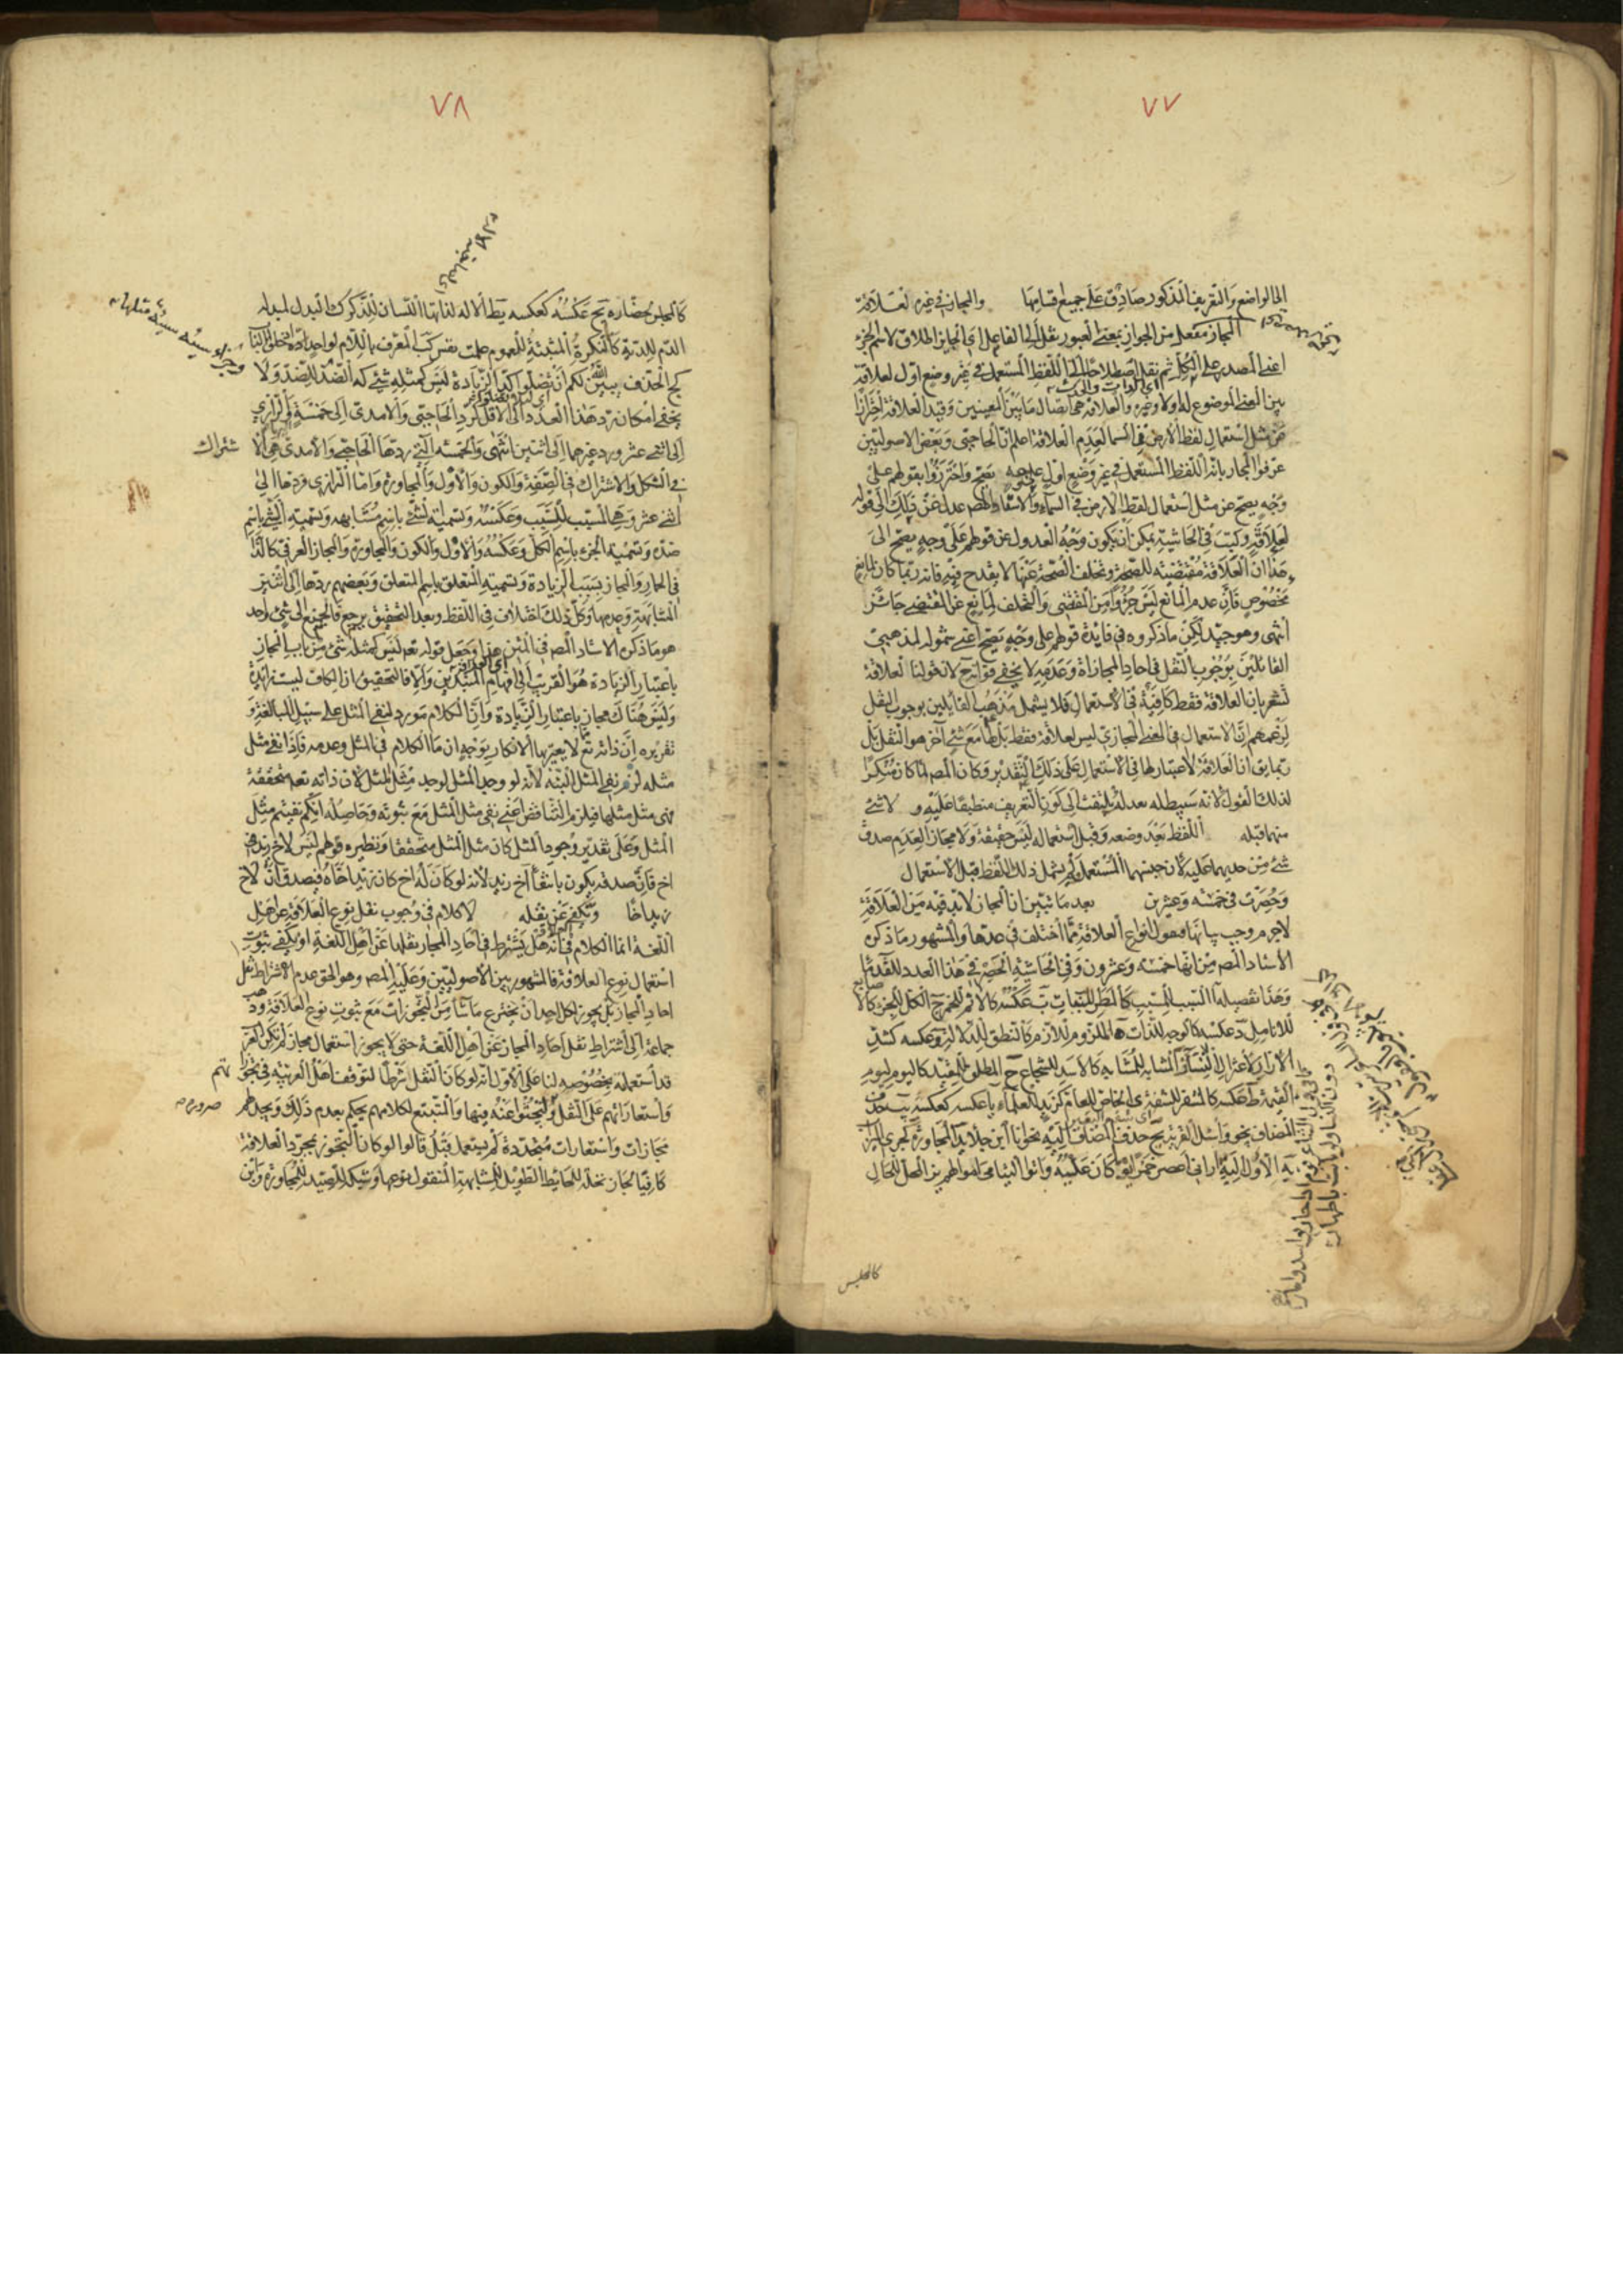 ٧٧
الى الواضع والتعريف المذكور صادق على جميع اقسامها والمجاز في غيره لعلاقة
المجاز مفعل من الجواز بمعنى العبور نقل الى الفاعل اي الجايز اطلاق لاسم الجزء
اعني المصدر على الكل ثم نقل اصطلاحا الى اللفظ المستعمل في غير وضع اول لعلاقة
بين المعنى الموضوع له اولا وغيره والعلاقة هي اتصال ما بين المعنيين وقيد العلاقة احترازا
عن مثل استعمال لفظ الارض في السما لعدم العلاقة اعلم ان الحاجبى وبعض الاصوليين
عرفوا المجاز بانه اللفظ المستعمل في غير وضع اول على وجه يصح واحترزوا بقولهم على
وجه يصح عن مثل استعمال لفظ الارض في السماء والاستاد المصـ عدل عن ذلك الى قوله
لعلاقة وكتب في الحاشية يمكن ان يكون وجه العدول عن قولهم على وجه يصح الى
هذا ان العلاقة مقتضية للصحة وتخلف الصحة عنها لا يقدح فيه فانه ربما كان لمانع
مخصوص فان عدم المانع ليس جزوا من المقتضى والتخلف لمانع عن المقتضى جائز
انتهى وهو جيد لكن ما ذكروه في فايدة قولهم على وجه يصح اعني شموله لمذهبي
القائلين بوجوب النقل في احاد المجازاة وعدمه لا يخفى فواته ح لان قولنا لعلاقة
تشعر بان العلاقة فقط كافية في الاستعمال فلا يشمل مذهب القايلين بوجوب النقل
لزعمهم ان الاستعمال في المعنى المجازي ليس لعلاقة فقط بل لها مع شئ آخر هو النقل بل
ربما يق ان العلاقة لا اعتبار لها في الاستعمال على ذلك التقدير وكان المصـ لما كان منكرا
لذلك القول لانه سيبطله بعد لم يلتفت الى كون التعريف منطبقا عليه و لا شئ
منهما قبله اللفظ بعد وضعه وقبل استعماله ليس حقيقة ولا مجاز العدم صدق
شئ من حديهما عليه لان جنسهما المستعمل ولم يشمل ذلك اللفظ قبل الاستعمال
وحصرت في خمسة وعشرين بعد ما تبين ان المجاز لابد فيه من العلاقة
لاجرم وجب بيانها فنقول انواع العلاقة مما اختلف في عدها والمشهور ما ذكره
الاستاد المصـ من انها خمسة وعشرون وفي الحاشية الحصر في هذا العدد للقدماء
وهذا تفصيلها السبب للمسبب كالمطر للنبات ب عكسه كالاثم للخمر ج الكل للجزء كالا
للانامل د عكسه كالوجه للذات ه الملزوم للازم كالنطق للدلالة و عكسه كشد
الازار لاعتزال النساء ز المشابه للمشابه كالاسد للشجاع ح المطلق للمقيد كاليوم ليوم
القيمة ط عكسه كالمشفر للشفة ى الخاص للعام كزيد للعلماء يا عكسه كعكسه يب حذف
المضاف نحو واسئل القرية يج حذف المضاف اليه نحو انا ابن جلا يد المجاورة كجرى الميزاب
يه الاول اليه اراني اعصر خمرا يو كان عليه واتوا اليتامى اموالهم يز المحل للحال
كالمجلس
٧٨
كالمجلس لحضاره يح عكسه كعكسه يط الالة لذيها اللسان للذكر ك البدل لمبدله
الدم للدية كا النكرة المثبتة للعموم علمت نفس كب المعرف باللام لواحد ادخلوا الباب
كج الحذف يبين الله لكم ان تضلوا كد الزيادة ليس كمثله شئ كه الضد للضد ولا
يخفى امكان رد هذا العدد الى الاقل كرد الحاجبى والامدى الى خمسة والرازي
الى اثنى عشر ورد غيرهما الى اثنين انتهى والخمسة التي ردها الحاجبى والامدى هي الا
شتراك
في الشكل والاشتراك في الصفة والكون والاول والمجاورة واما الرازي فردها الى
اثنى عشر وهي السبب للمسبب وعكسه وتسمية لشئ باسم مشابهه وتسمية الشئ باسم
ضده وتسمية الجزء باسم الكل وعكسه والاول والكون والمجاورة والمجاز العرفي كالدابة
في الحمار والمجاز بسبب الزيادة وتسمية المتعلق باسم المتعلق وبعضهم ردها الى اثنين
المشابهة وعدمها وكل ذلك اختلاف في اللفظ وبعد التحقيق يرجع الجميع الى شئ واحد
هو ما ذكره الاستاد المصـ في المتن هذا وجعل قوله تعم ليس كمثله شئ من باب المجاز
باعتبار الزيادة هو القريب الى افهام المبتدئين والا فالتحقيق ان الكاف ليست زائدة
وليس هناك مجاز باعتبار الزيادة وانما الكلام مورد لنفي المثل على سبيل المبالغة و
تقريره ان ذاته تع لا يعتريها الانكار بوجه انما الكلام في المثل وعدمه فاذا نفى مثل
مثله لزم نفى المثل البتة لانه لو وجد المثل لوجد مثل المثل لان ذاته تعم متحققة
فهي مثل مثلها فيلزم التناقض اعني نفى مثل المثل مع ثبوته وحاصله انكم نفيتم مثل
المثل وعلى تقدير وجود المثل كان مثل المثل متحققا ونظيره قولهم ليس لاخ زيد
اخ فان صدقه يكون بانتفاء اخ زيد لانه لو كان له اخ كان زيد اخاه فيصدق ان لاخ
زيد اخا ويكفى عن نقله لا كلام في وجوب نقل نوع العلاقة عن اهل
اللغة انما الكلام في انه هل يشترط في احاد المجاز نقلها عن اهل اللغة او يكفى ثبوت
استعمال نوع العلاقة فالمشهور بين الاصوليين وعليه المصـ وهو الحق عدم الاشتراط نقل
احاد المجاز بل يجوز لكل احد ان يخترع ما شاء من التجوزات مع ثبوت نوع العلاقة وذهب
جماعة الى اشتراط نقل احاد المجاز عن اهل اللغة حتى لا يجوز استعمال مجاز لم تكن العرب
قد استعمله بخصوصه لنا على الاول انه لو كان النقل شرطا لتوقف اهل العربية في تجوزاتهم
واستعاراتهم على النقل ولبحثوا عنه فيها والمتتبع لكلامهم يحكم بعدم ذلك ويجد لهم
مجازات واستعارات متجددة لم يستعمل قبل قالوا لو كان التجوز بمجرد العلاقة
كافيا لجاز نخلة للحائط الطويل للمشابهة المنقول نوعها وشبكة للصيد للمجاورة وابن